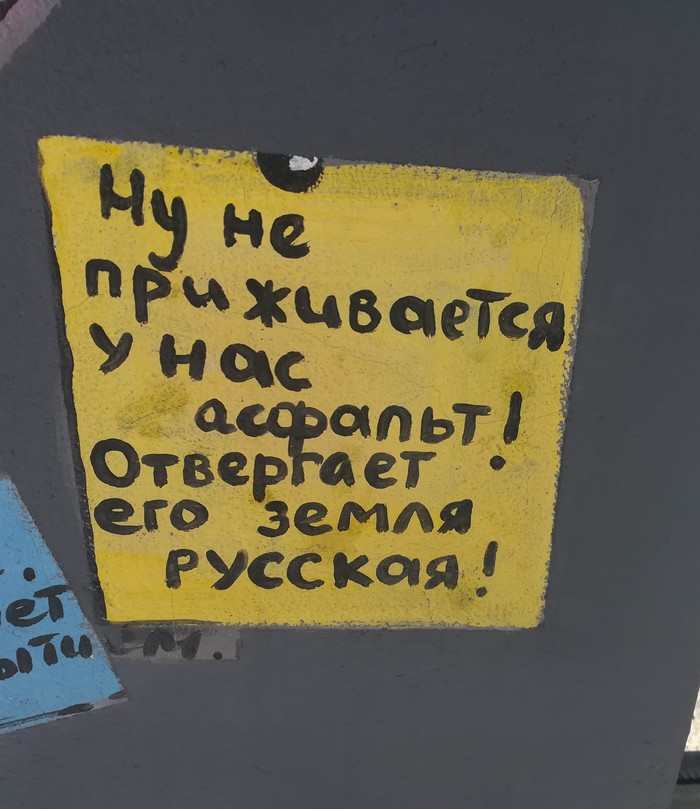 Ну не
приживается
у нас
асфальт!
Отвергает
его земля
русская!